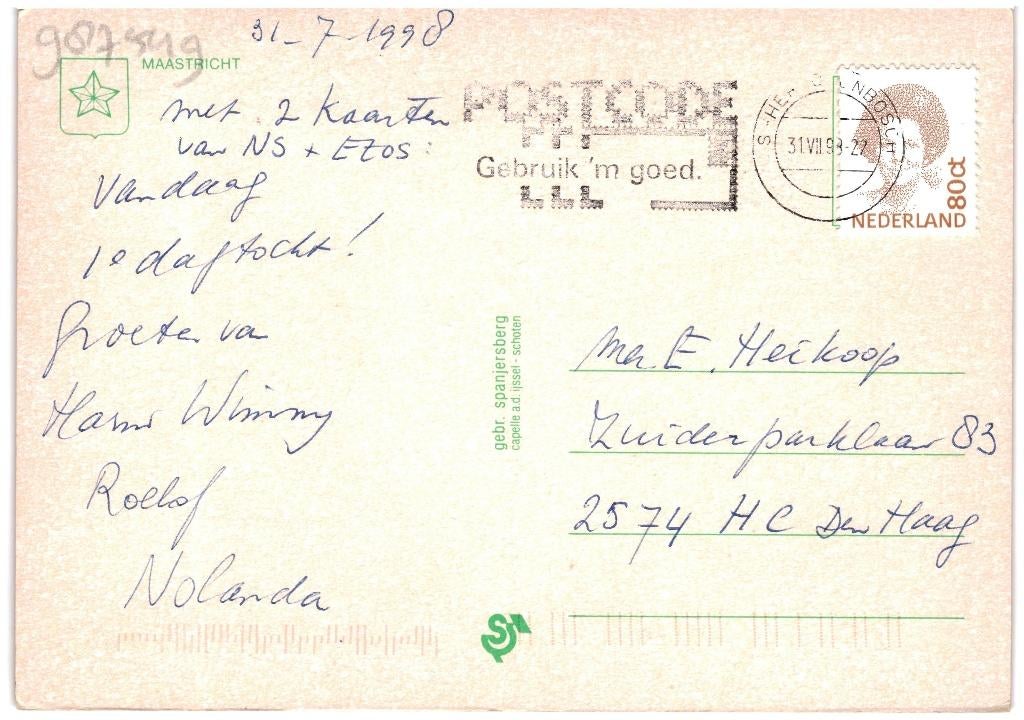 31-7-1998
MAASTRICHT
met 2 Kaarten
van NS + ETOS:
Vandaag
1e dagtocht!
Groeten van
Wimmy
Roelof
Nolanda
POSTCODE
Gebruik 'm goed.
31 VII 98-22
80ct
NEDERLAND
gebr. spanjersberg
capelle a.d. ijssel - schoten
E. Heikoop
Zuiderparklaan 83
2574 HC Den Haag